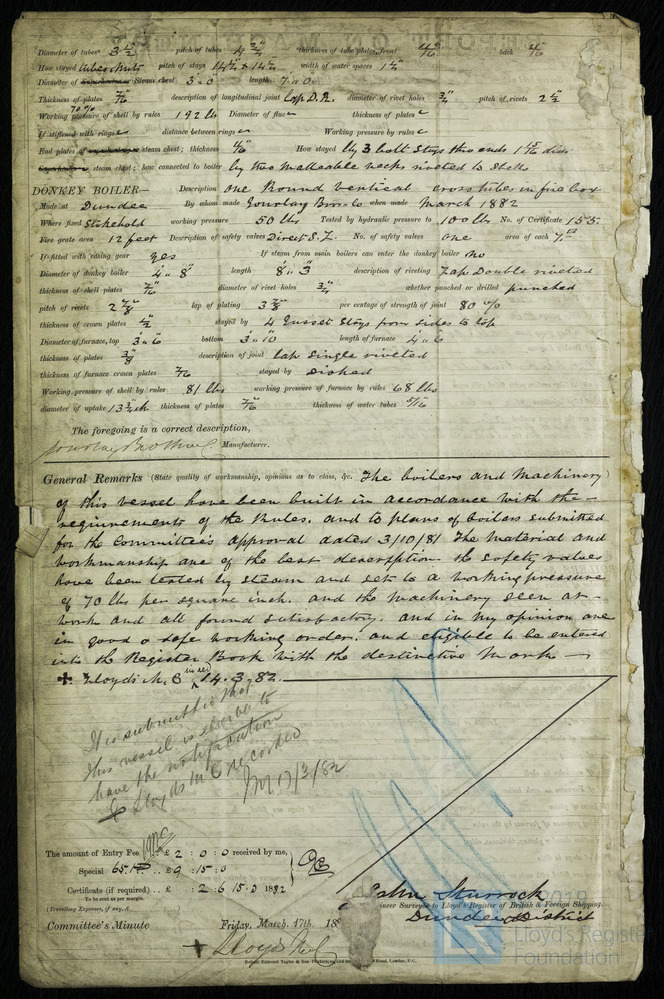 Diameter of tubes 3 ½" pitch of tubes 4 ¾" thickness of tube plates, front 11/16 back 11/16
How stayed tubes & nuts pitch of stays 14½" x 14½ width of water spaces 1¼"
Diameter of Superheater or Steam chest 3' 0" length 7' 0"
Thickness of plates 7/16" description of longitudinal joint Lap D.R. diameter of rivet holes ¾" pitch of rivets 2½"
70%
Working pressure of shell by rules 192 lbs Diameter of flue thickness of plates
If stiffened with rings distance between rings Working pressure by rules
End plates of superheater or steam chest; thickness How stayed by 3 bolt stays thro ends
Superheater or steam chest; how connected to boiler by two Malleable necks riveted to Shells
DONKEY BOILER— Description One Round Vertical cross tubes in fire box
Made at Dundee By whom made Gourlay Bros & Co when made March 1882
Where fixed Stokehold working pressure 50 lbs Tested by hydraulic pressure to 100 lbs No. of Certificate 155
Fire grate area 12 feet Description of safety valves Direct S.L. No. of safety valves One area of each 7"
If fitted with easing gear yes If steam from main boilers can enter the donkey boiler no
Diameter of donkey boiler 4' 8" length 8' 3" description of riveting Lap Double riveted
thickness of shell plates 7/16" diameter of rivet holes ¾" whether punched or drilled punched
pitch of rivets 2 ⅞" lap of plating 3 ⅞" per centage of strength of joint 80%
thickness of crown plates ½" stayed by 4 Gusset Stays from sides to top
Diameter of furnace, top 3' 6" bottom 3' 10 length of furnace 4' 6
thickness of plates ⅜" description of joint lap single riveted
thickness of furnace crown plates 7/16 stayed by dished
Working pressure of shell by rules 81 lbs working pressure of furnace by rules 68 lbs
diameter of uptake 13 ¾ in thickness of plates 7/16 thickness of water tubes 5/16
The foregoing is a correct description,
Gourlay Brothers Manufacturer.
General Remarks (State quality of workmanship, opinions as to class, &c. The boilers and Machinery
of this vessel have been built in accordance with the
requirements of the Rules. and to plans of boilers submitted
for the Committee's approval dated 3/10/81 The Material and
workmanship are of the best description the safety valves
have been tested by steam and set to a working pressure
of 70 lbs per square inch. and the Machinery seen at
work and all found satisfactory. and in my opinion are
in good & safe working order. and eligible to be entered
into the Register Book with the destinctive Mark
✠ Lloyds M.C in red 14.3.82.
It is submitted that
this vessel is eligible to
have the notification
✠ Lloyds M C recorded
17/3/82
The amount of Entry Fee £ 2 : 0 : 0 received by me,
Special £ 9 : 15 : 0
Certificate (if required) .. £ : 2 6 15.3 1882
To be sent as per margin.
(Travelling Expenses, if any, £ )
John Sturrock
Engineer Surveyor to Lloyd's Register of British & Foreign Shipping.
Dundee District
Committee's Minute Friday, March. 17th. 188
✠ Lloyds M.C.
Lloyd's Register
Foundation